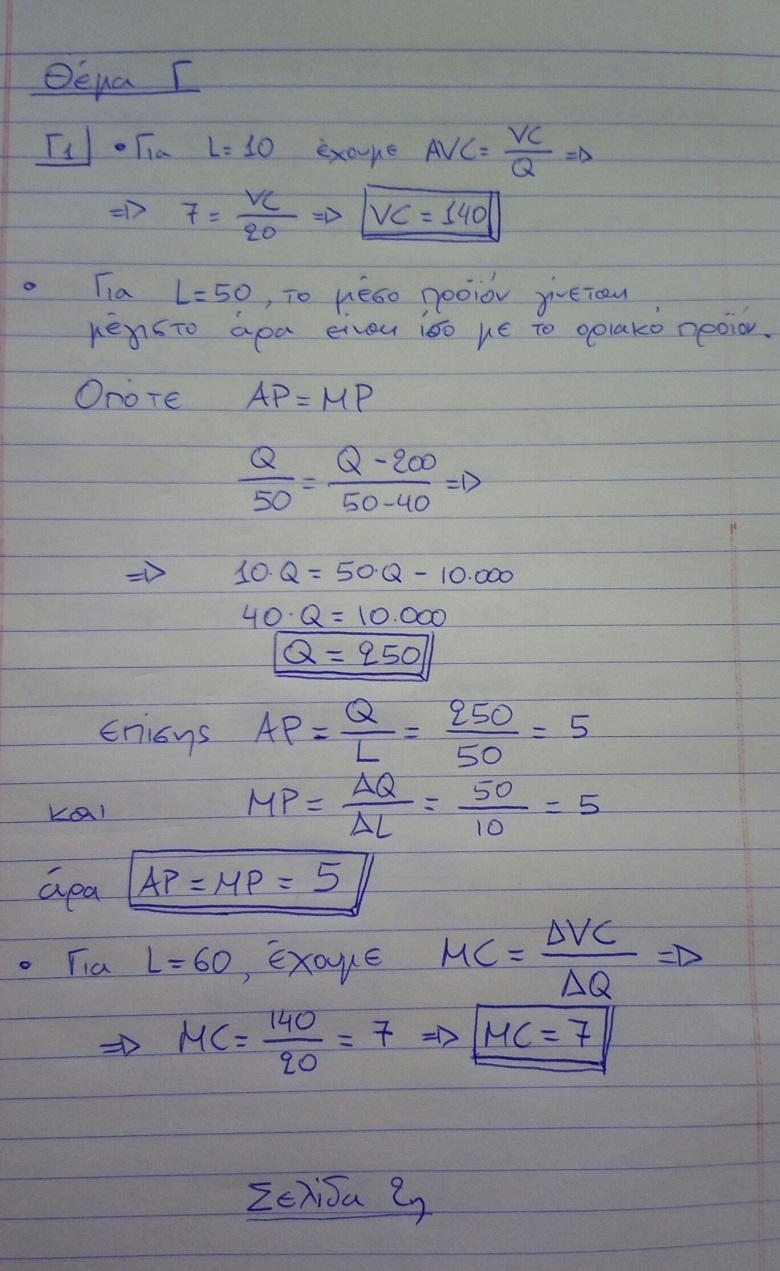 Θέμα Γ
Γ1 • Για L=10 έχουμε AVC = VC/Q ⇒
⇒ 7 = VC/20 ⇒ VC = 140
• Για L=50, το μέσο προϊόν γίνεται
μέγιστο άρα είναι ίσο με το οριακό προϊόν.
Οπότε AP = MP
Q/50 = Q - 200/50 - 40 ⇒
⇒ 10·Q = 50·Q - 10.000
40·Q = 10.000
Q = 250
επίσης AP = Q/L = 250/50 = 5
και MP = ΔQ/ΔL = 50/10 = 5
άρα AP = MP = 5
• Για L=60, έχουμε MC = ΔVC/ΔQ ⇒
⇒ MC = 140/20 = 7 ⇒ MC = 7
Σελίδα 2η